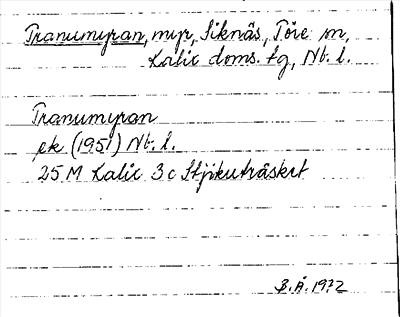 Tranumyran, myr, Siknäs, Töre sn,
Kalix doms. tg, Nb. l.
Tranumyran
ek (1951) Nb. l.
25 M Kalix 3c Stjikuträsket
B.Å. 1972